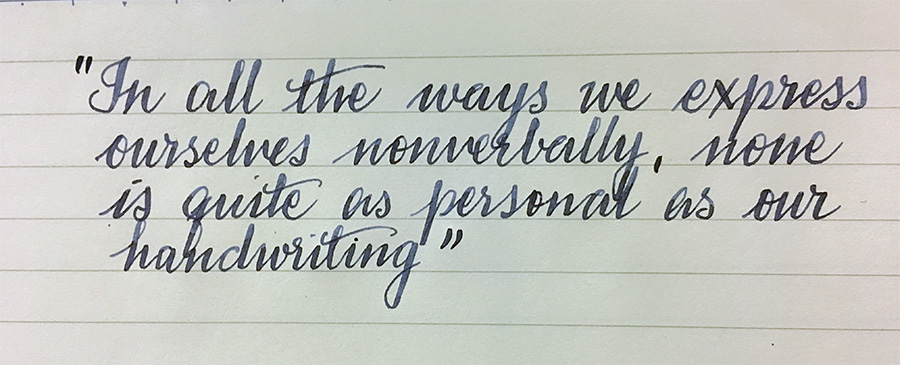 "In all the ways we express
ourselves nonverbally, none
is quite as personal as our
handwriting"